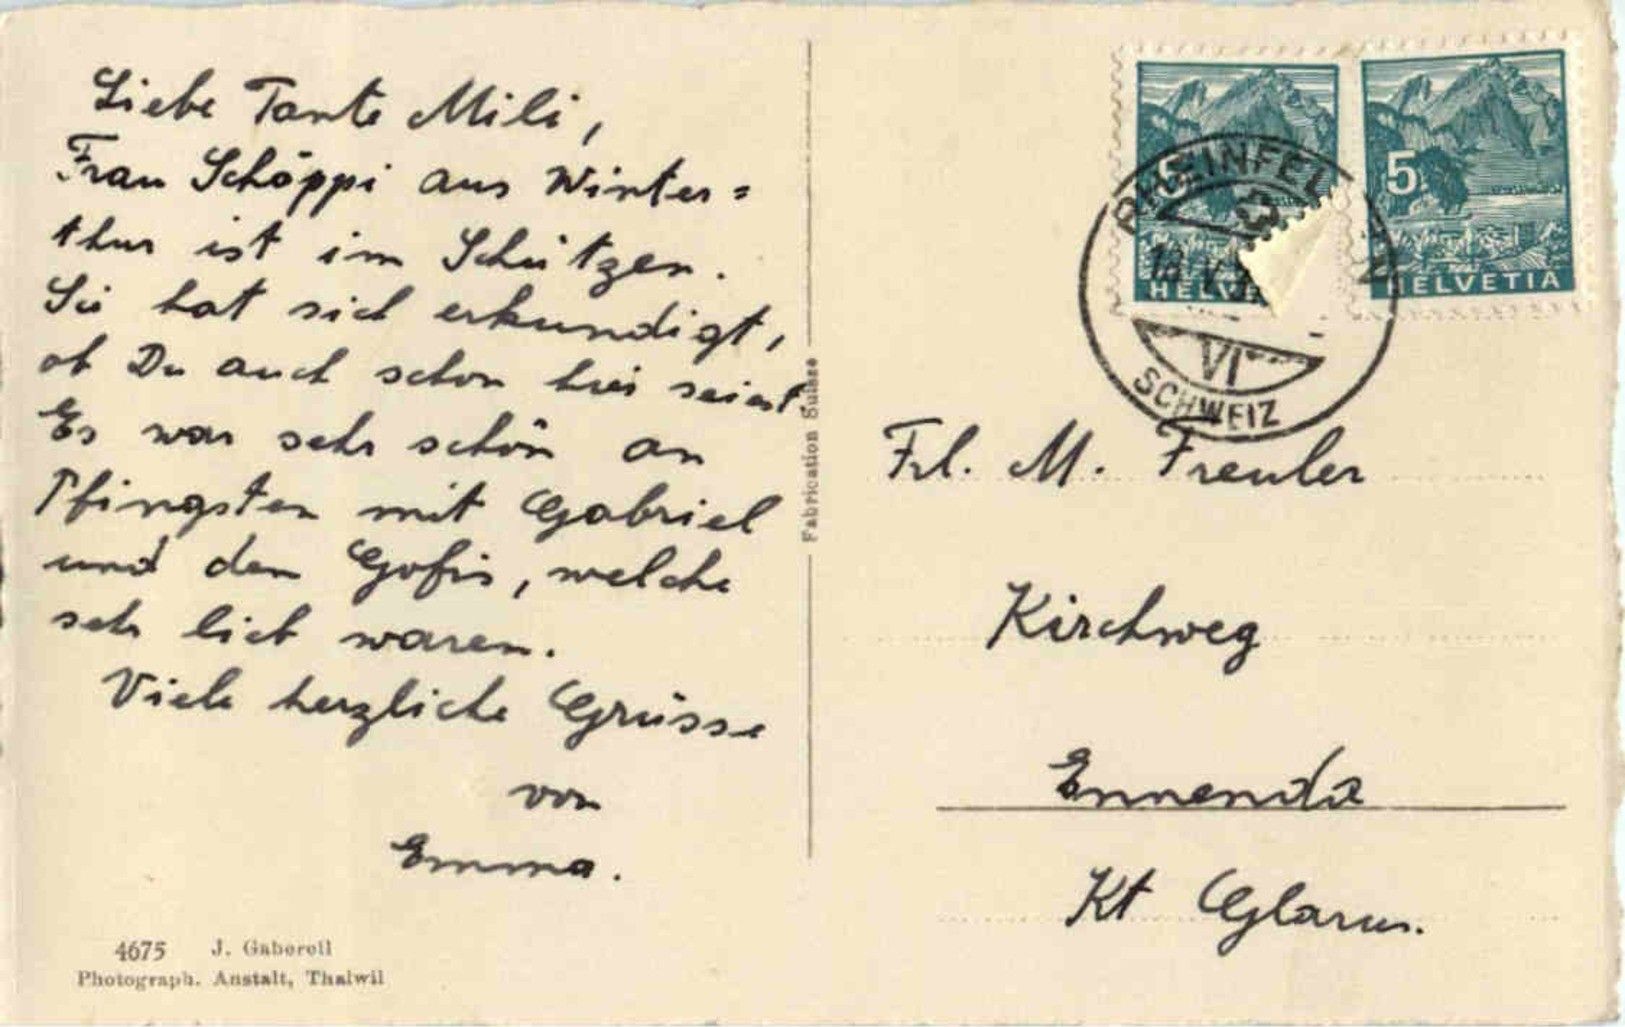 Liebe Tante Mili,
Frau Schöppi aus Winter=
thur ist im Schützen.
Sie hat sich erkundigt,
ob Du auch schon hier seiest.
Es war sehr schön an
Pfingsten mit Gabriel
und den Gofis, welche
sehr lieb waren.
Viele herzliche Grüsse
von
Emma.
4675 J. Gaberell
Photograph. Anstalt, Thalwil
Fabrication Suisse
5
HELVE
5
HELVETIA
RHEINFEL
EN
VI
SCHWEIZ
Frl. M. Freuler
Kirchweg
Ennenda
Kt Glarus.